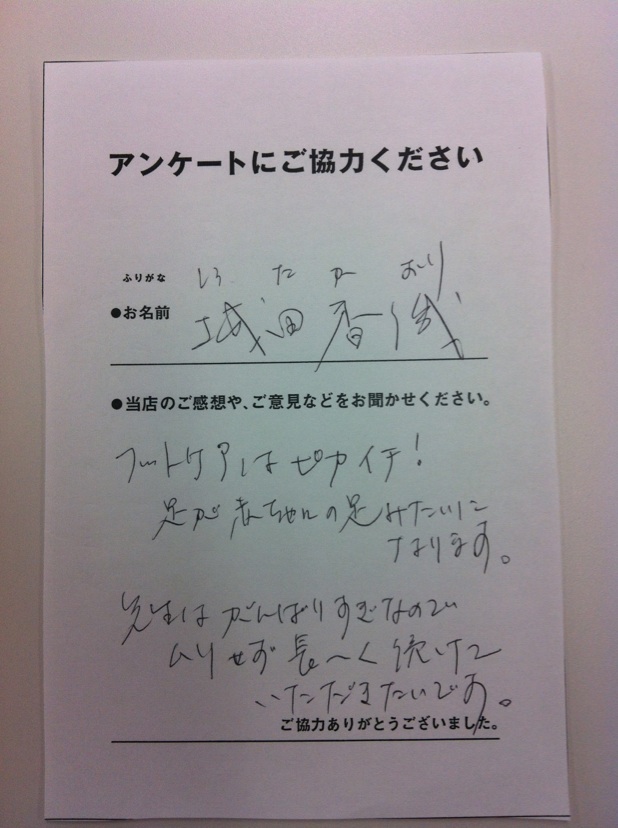 アンケートにご協力ください
ふりがな しろ た か おり
●お名前 城田香織
●当店のご感想や、ご意見などをお聞かせください。
フットケアはピカイチ!
足が赤ちゃんの足みたいに
なります。
先生はがんばりすぎなので
ムリせず長〜く続けて
いただきたいです。
ご協力ありがとうございました。